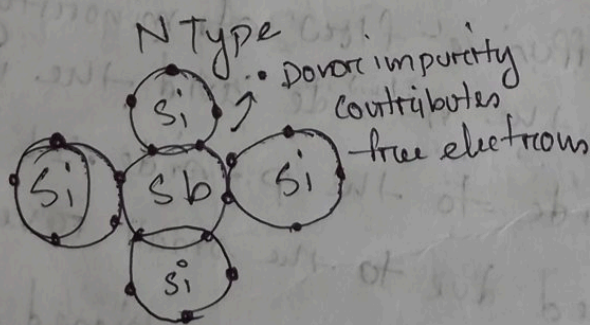 N Type
Donor impurity
contributes
free electrons
Si
Si
Sb
Si
Si